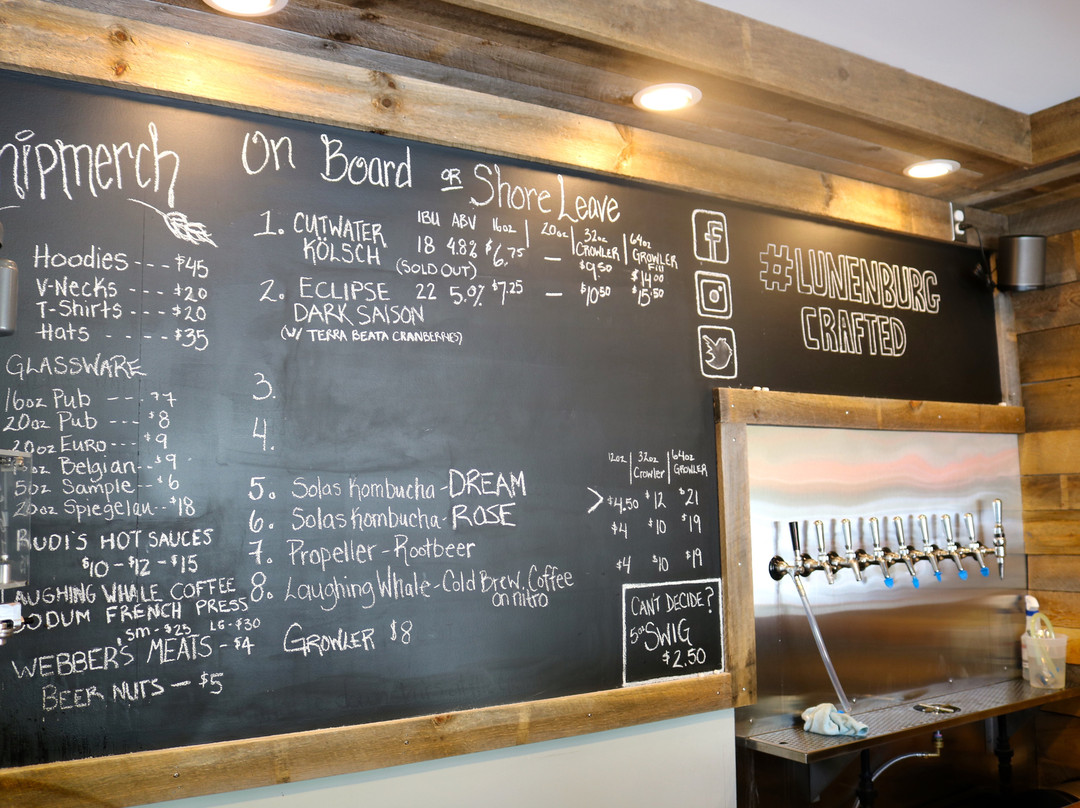 hipmerch
Hoodies --- $45
V-Necks --- $20
T-Shirts --- $20
Hats ---- $35
GLASSWARE
16oz Pub
20oz Pub --- $8
20oz Euro --- $9
Belgian -- $9
5oz Sample -- $6
20oz Spiegelau -- $18
RUDI'S HOT SAUCES
$10 - $12 - $15
LAUGHING WHALE COFFEE
BODUM FRENCH PRESS
SM - $25 LG - $30
WEBBER'S MEATS - $4
BEER NUTS — $5
On Board OR Shore Leave
IBU ABV 16oz | 20oz | 32oz CROWLER | 64oz GROWLER FILL
1. CUTWATER KÖLSCH 18 4.8% $6.75 — $9.50 $14.00
(SOLD OUT)
2. ECLIPSE 22 5.0% $7.25 — $10.50 $15.50
DARK SAISON
(W/ TERRA BEATA CRANBERRIES)
3.
4.
12oz | 32oz Crowler | 64oz GROWLER
5. Solas Kombucha - DREAM
6. Solas Kombucha - ROSE
> $4.50 $12 $21
7. Propeller - Rootbeer $4 $10 $19
8. Laughing Whale - Cold Brew Coffee $4 $10 $19
on nitro
GROWLER $8
CAN'T DECIDE?
5oz SWIG
$2.50
f
#LUNENBURG
CRAFTED